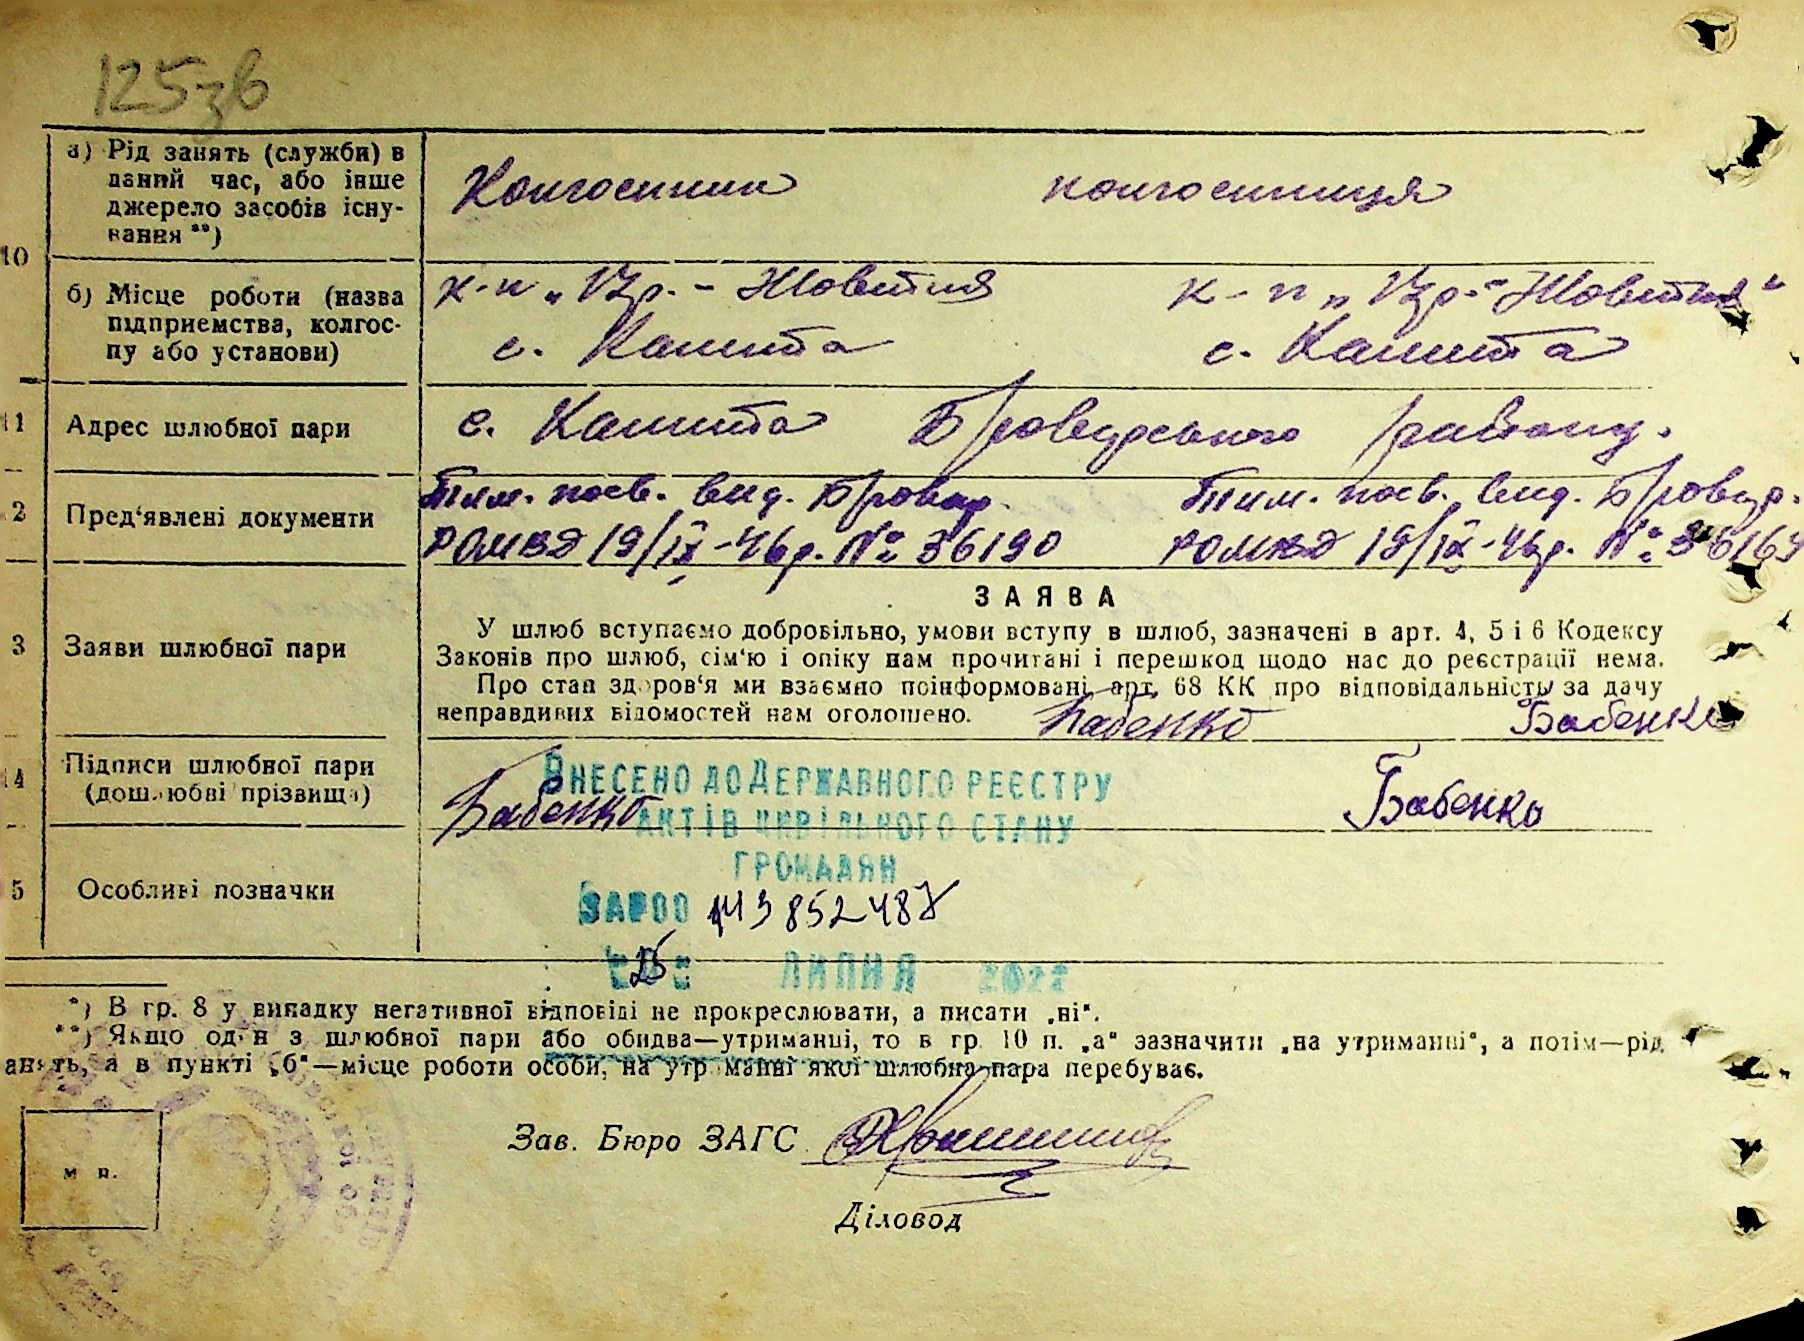 125зв
а) Рід занять (служби) в
даний час, або інше
джерело засобів існу-
вання **)
Колгоспник колгоспниця
10
б) Місце роботи (назва
підприємства, колгос-
пу або установи)
к-п „12 р.- Жовтня к-п „12 р.-Жовтня"
с. Калита с. Калита
11
Адрес шлюбної пари
с. Калита Броварського району.
2
Пред'явлені документи
Тим. посв. вид. Бровар. Тим. посв. вид. Бровар.
РОМВД 19/IX-46р. № 36190 РОМВД 19/IX-46р. № 36169
ЗАЯВА
3
Заяви шлюбної пари
У шлюб вступаємо добровільно, умови вступу в шлюб, зазначені в арт. 4, 5 і 6 Кодексу
Законів про шлюб, сім'ю і опіку нам прочитані і перешкод щодо нас до реєстрації нема.
Про стан здоров'я ми взаємно поінформовані, арт. 68 КК про відповідальність за дачу
неправдивих відомостей нам оголошено. Бабенко Бабенко
14
Підписи шлюбної пари
(дошлюбні прізвища)
Бабенко Бабенко
ВНЕСЕНО ДО ДЕРЖАВНОГО РЕЄСТРУ
АКТІВ ЦИВІЛЬНОГО СТАНУ
ГРОМАДЯН
5
Особливі позначки
ЗА №00 143852487
25 ЛИПНЯ 2022
*) В гр. 8 у випадку негативної відповіді не прокреслювати, а писати „ні".
**) Якщо один з шлюбної пари або обидва—утриманці, то в гр. 10 п. „а" зазначити „на утриманні", а потім—рід
анять, а в пункті „б"—місце роботи особи, на утриманні якої шлюбна пара перебуває.
м п.
Зав. Бюро ЗАГС
Діловод